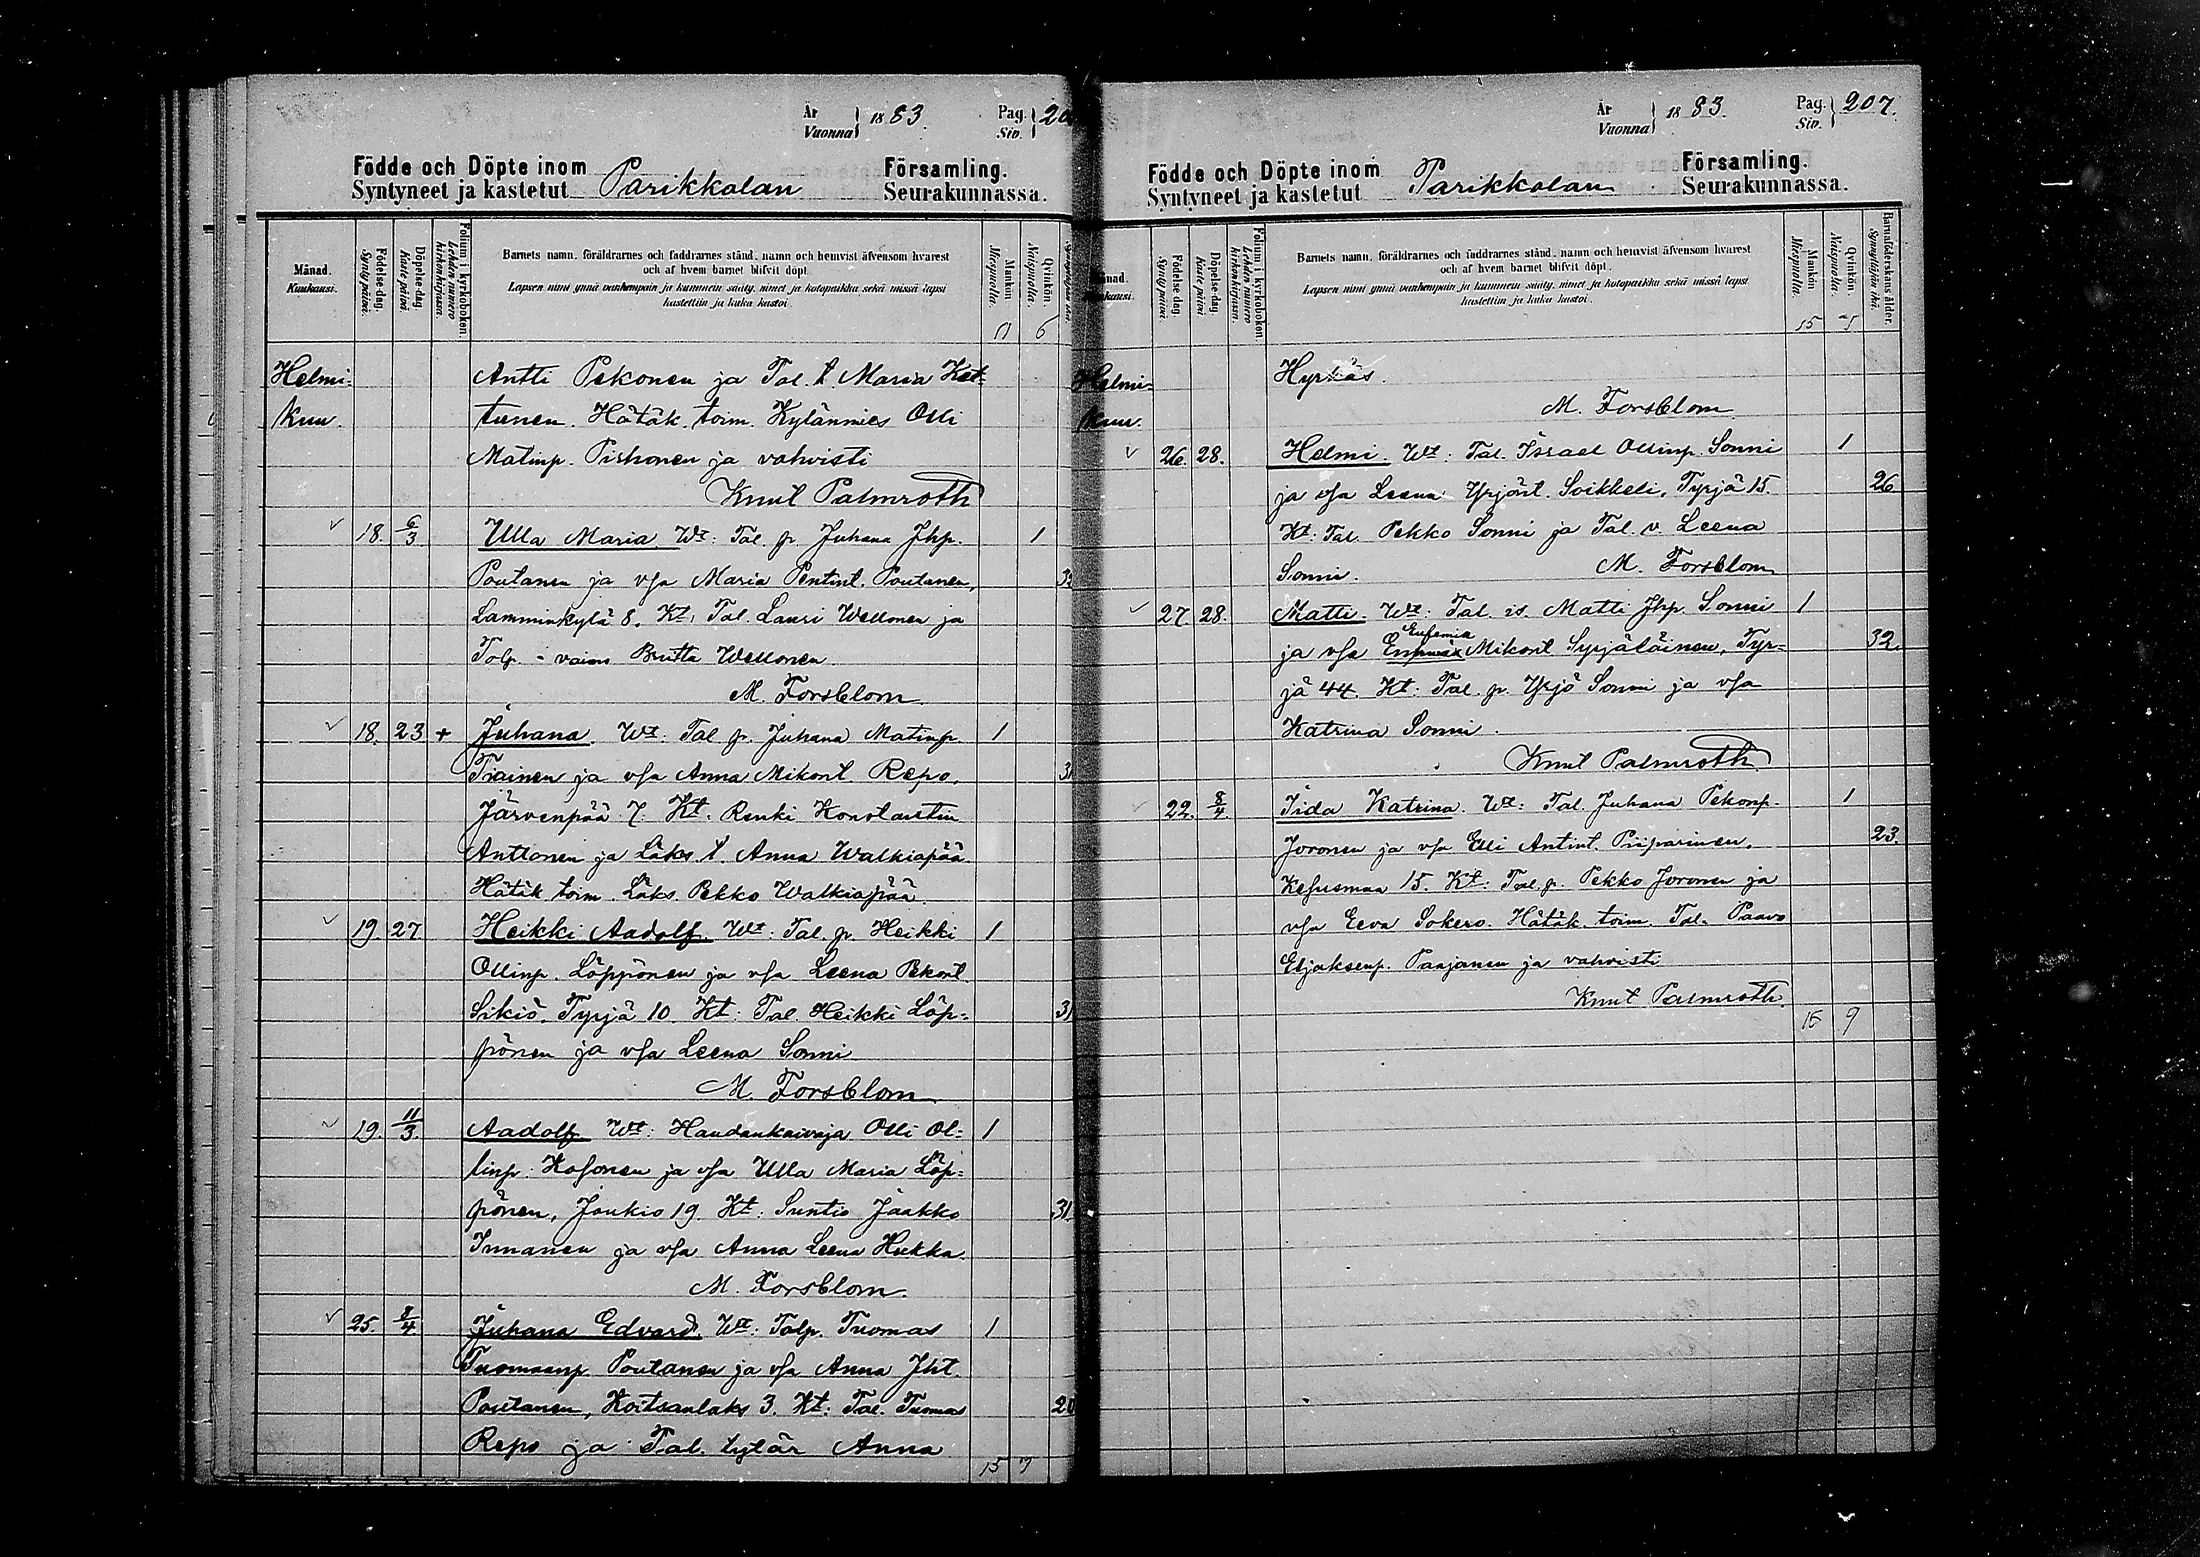 År
Vuonna
1883.
Pag.
Siv.
20
Födde och Döpte inom
Syntyneet ja kastetut
Parikkalan
Församling.
Seurakunnassa.
Månad.
Kuukausi.
Födelse-dag.
Synty päivä.
Döpelse-dag.
Kaste päivä.
Folium i kyrkoboken.
Lehden numero kirkonkirjassa.
Barnets namn, föräldrarnes och faddrarnes stånd, namn och hemvist äfvensom hvarest
och af hvem barnet blifvit döpt.
Lapsen nimi ynnä vanhempain ja kummein sääty, nimet ja kotopaikka sekä missä lapsi
kastettiin ja kuka kastoi.
Mankön.
Miespuolia.
Qvinkön.
Naispuolia.
11 6
Helmi- Antti Pekonen ja Tal. t. Maria Ket-
kuu. tunen. Hätäk. toim. Kylänmies Olli
Matinp. Pirhonen ja vahvisti
Knut Palmroth
18. 6/3 Ulla Maria. Wt: Tal. p. Juhana Jhp. 1
Poutanen ja vsa Maria Pentint. Poutanen,
Lamminkylä 8. Kt: Tal. Lauri Wellonen ja
Talp. - vaimo Britta Wellonen.
M. Forsblom.
18. 23 + Juhana. Wt: Tal p. Juhana Matinp. 1
Tiainen ja vsa Anna Mikont. Repo, 31
Järvenpää 7. Kt. Renki Konstantin
Anttonen ja Läks. t. Anna Walkiapää.
Hätäk toim. Läks. Pekko Walkiapää.
19. 27 Heikki Aadolf. Wt: Tal. p. Heikki 1
Ollinp. Löppönen ja vsa Leena Pekont.
Sikiö. Tyrjä 10. Kt: Tal. Heikki Löp- 31
pönen ja vsa Leena Sonni
M. Forsblom.
19. 11/3. Aadolf Wt: Haudankaivaja Olli Ol- 1
linp. Kosonen ja vsa Ulla Maria Löp-
pönen, Joukio 19. Kt: Suntio Jaakko 31.
Innanen ja vsa Anna Leena Hukka.
M. Forsblom.
25. 8/4 Juhana Edvard. Wt: Talp. Tuomas 1
Tuomaanp. Poutanen ja vsa Anna Jht.
Poutanen, Koitsanlaks 3. Kt: Tal. Tuomas 20
Repo ja Tal. tytär Anna
15 7
År
Vuonna
1883.
Pag.
Siv.
207.
Födde och Döpte inom
Syntyneet ja kastetut
Parikkalan
Församling.
Seurakunnassa.
Månad.
Kuukausi.
Födelse-dag.
Synty päivä.
Döpelse-dag.
Kaste päivä.
Folium i kyrkoboken.
Lehden numero kirkonkirjassa.
Barnets namn, föräldrarnes och faddrarnes stånd, namn och hemvist äfvensom hvarest
och af hvem barnet blifvit döpt.
Lapsen nimi ynnä vanhempain ja kummein sääty, nimet ja kotopaikka sekä missä lapsi
kastettiin ja kuka kastoi.
Mankön.
Miespuolia.
Qvinkön.
Naispuolia.
Barnföderskans ålder.
Synnyttäjän ikä.
15 7
Helmi- Hyrkäs.
kuu. M. Forsblom
26. 28. Helmi. Wt: Tal. Israel Ollinp. Sonni 1
ja vsa Leena Yrjönt. Soikkeli, Tyrjä 15. 26
Kt: Tal. Pekko Sonni ja Tal. v. Leena
Sonni. M. Forsblom
27. 28. Matti. Wt: Tal. is. Matti Jhp. Sonni 1
ja vsa Eufemia Mikont Syrjäläinen, Tyr- 32.
jä 44. Kt: Tal. p. Yrjö Sonni ja vsa
Katrina Sonni.
Knut Palmroth
22. 8/4 Iida Katrina. Wt: Tal. Juhana Pekonp. 1
Joronen ja vsa Elli Antint. Piiparinen, 23.
Kesusmaa 15. Kt: Tal. p. Pekko Joronen ja
vsa Eeva Sokero. Hätäk. toim. Tal. Paavo
Eljaksenp. Paajanen ja vahvisti
Knut Palmroth.
16 9